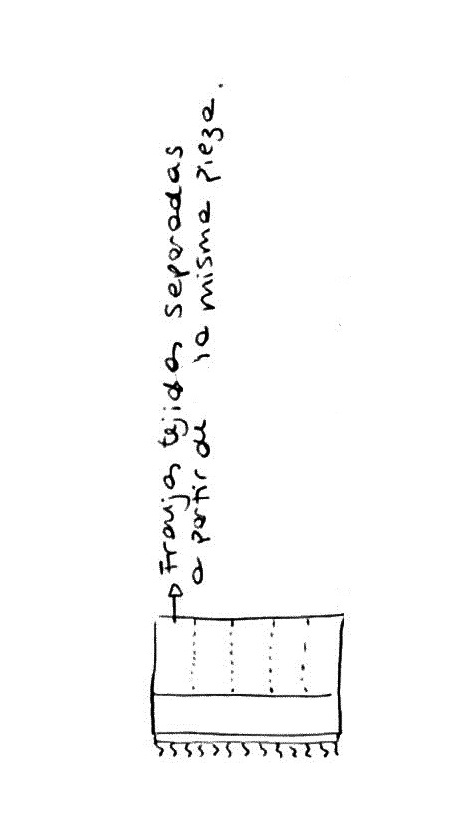 Franjas tejidas separadas
a partir de la misma pieza.